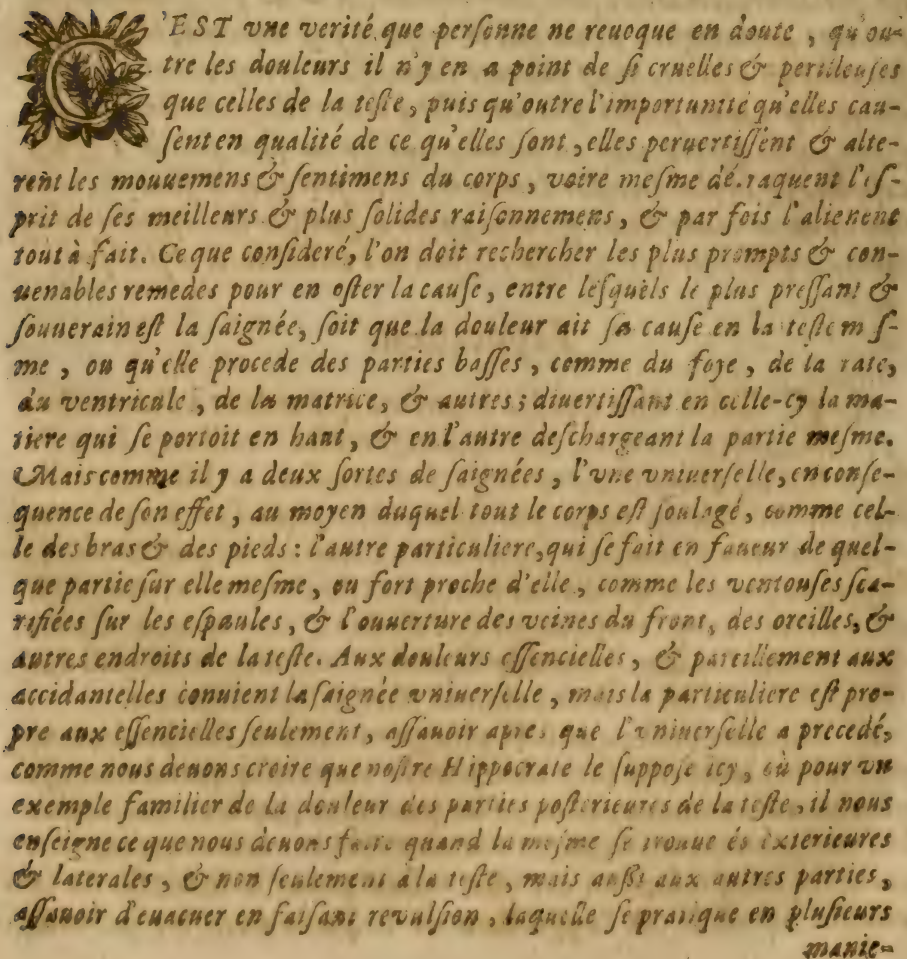 C'EST vne verité que perſonne ne reuoque en doute, qu'ou-
tre les douleurs il n'y en a point de ſi cruelles & perilleuſes
que celles de la teſte, puis qu'outre l'importunité qu'elles cau-
ſent en qualité de ce qu'elles ſont, elles peruertiſſent & alte-
rent les mouuemens & ſentimens du corps, voire meſme détraquent l'eſ-
prit de ſes meilleurs & plus ſolides raiſonnemens, & par fois l'alienent
tout à fait. Ce que conſideré, l'on doit rechercher les plus prompts & con-
uenables remedes pour en oſter la cauſe, entre leſquels le plus preſſant &
ſouuerain eſt la ſaignée, ſoit que la douleur ait ſa cauſe en la teſte meſ-
me, ou qu'elle procede des parties baſſes, comme du foye, de la rate,
du ventricule, de la matrice, & autres; diuertiſſant en celle-cy la ma-
tiere qui ſe portoit en haut, & en l'autre deſchargeant la partie meſme.
Mais comme il y a deux ſortes de ſaignées, l'vne vniuerſelle, en conſe-
quence de ſon effet, au moyen duquel tout le corps eſt ſoulagé, comme cel-
le des bras & des pieds: l'autre particuliere, qui ſe fait en faueur de quel-
que partie ſur elle meſme, ou fort proche d'elle, comme les ventouſes ſca-
rifiées ſur les eſpaules, & l'ouuerture des veines du front, des oreilles, &
autres endroits de la teſte. Aux douleurs eſſencielles, & pareillement aux
accidantelles conuient la ſaignée vniuerſelle, mais la particuliere eſt pro-
pre aux eſſencielles ſeulement, aſſauoir apres que l'vniuerſelle a precedé,
comme nous deuons croire que noſtre Hippocrate le ſuppoſe icy, où pour vn
exemple familier de la douleur des parties poſterieures de la teſte, il nous
enſeigne ce que nous deuons faire quand la meſme ſe trouue és exterieures
& laterales, & non ſeulement à la teſte, mais auſſi aux autres parties,
aſſauoir d'euacuer en faiſant revulſion, laquelle ſe pratique en pluſieurs
manie-